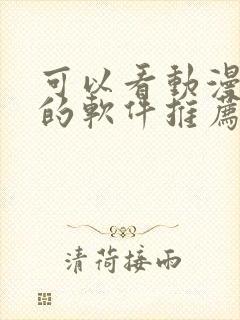 可以看動漫
的軟件推薦
清荷接雨